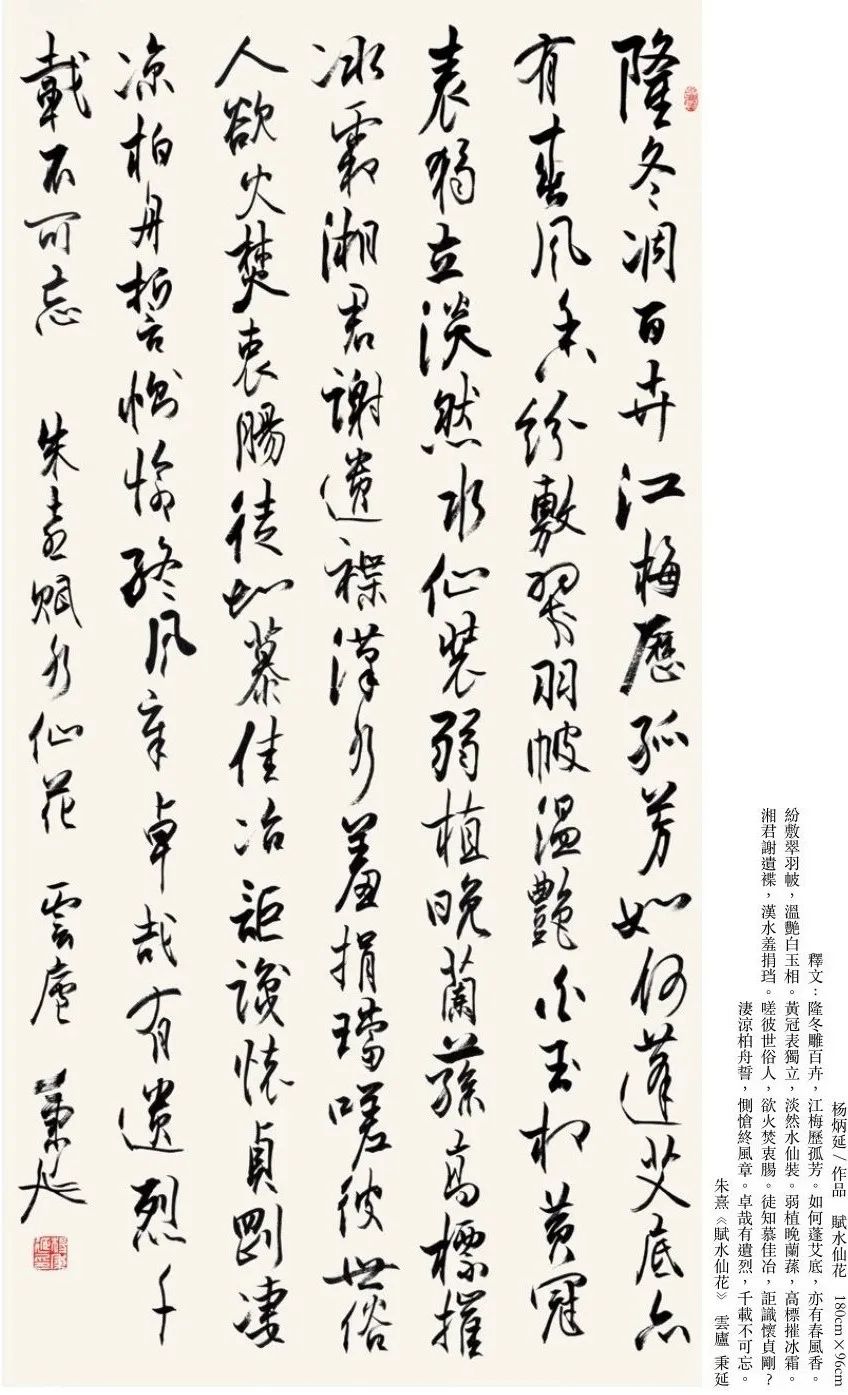 隆冬凋百卉江梅歷孤芳如何蓬艾底亦
有春風香紛敷翠羽帔溫艷白玉相黃冠
表獨立淡然水仙裝弱植晚蘭蓀高標摧
冰霜湘君謝遺褋漢水羞捐璫嗟彼世俗
人欲火焚衷腸徒知慕佳冶詎識懷貞剛凄
凉柏舟誓惻愴終風章卓哉有遺烈千
載不可忘 朱熹賦水仙花 雲廬 秉延
杨炳延/作品 賦水仙花 180cm×96cm
釋文：隆冬雕百卉，江梅歷孤芳。如何蓬艾底，亦有春風香。
紛敷翠羽帔，溫艷白玉相。黃冠表獨立，淡然水仙裝。弱植晚蘭蓀，高標摧冰霜。
湘君謝遺褋，漢水羞捐珰。嗟彼世俗人，欲火焚衷腸。徒知慕佳冶，詎識懷貞剛？
淒涼柏舟誓，惻愴終風章。卓哉有遺烈，千載不可忘。
朱熹《賦水仙花》 雲廬 秉延